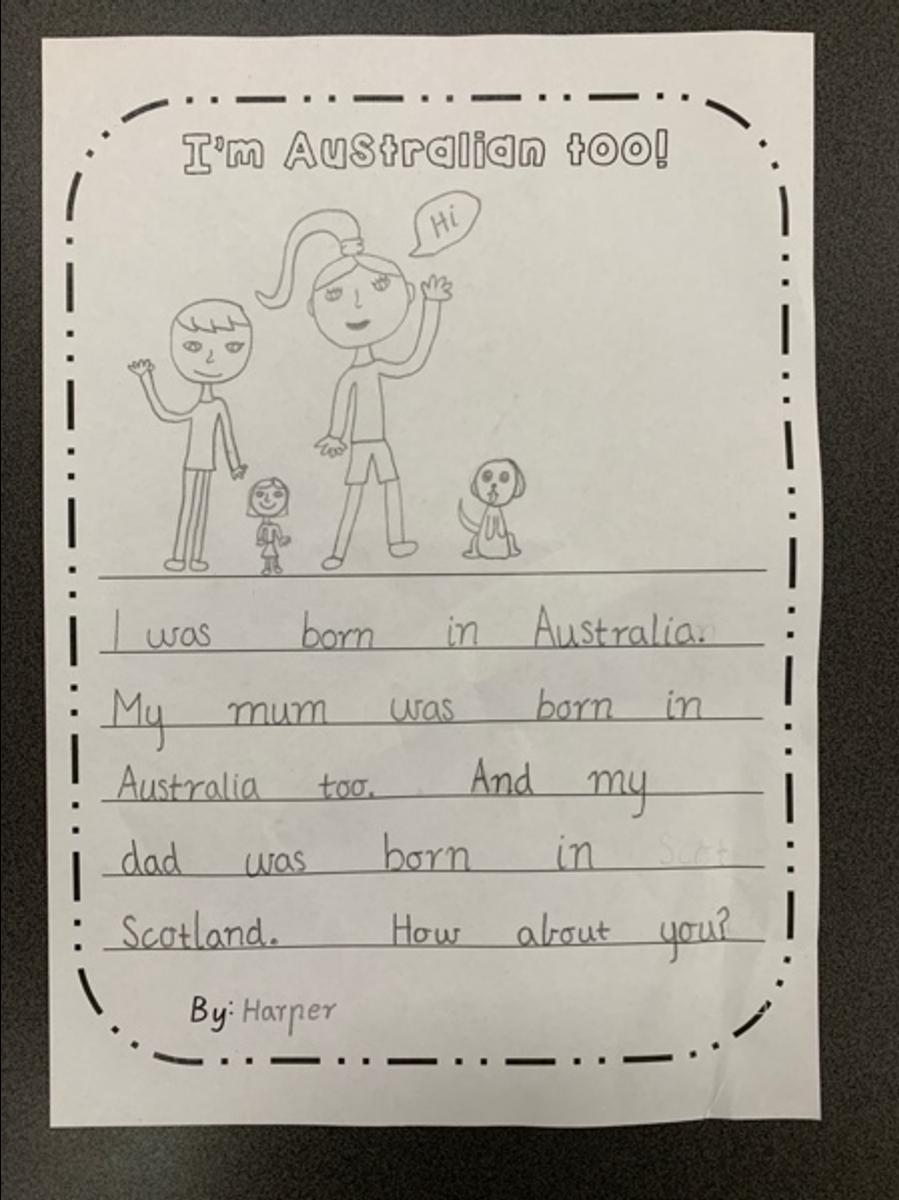 I'm Australian too!
Hi
I was born in Australia.
My mum was born in
Australia too. And my
dad was born in
Scotland. How about you?
By: Harper